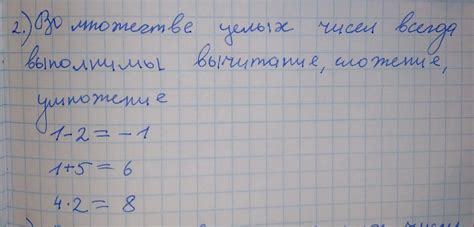 2.) Во множестве целых чисел всегда
выполнимы вычитание, сложение,
умножение
1-2=-1
1+5=6
4·2=8